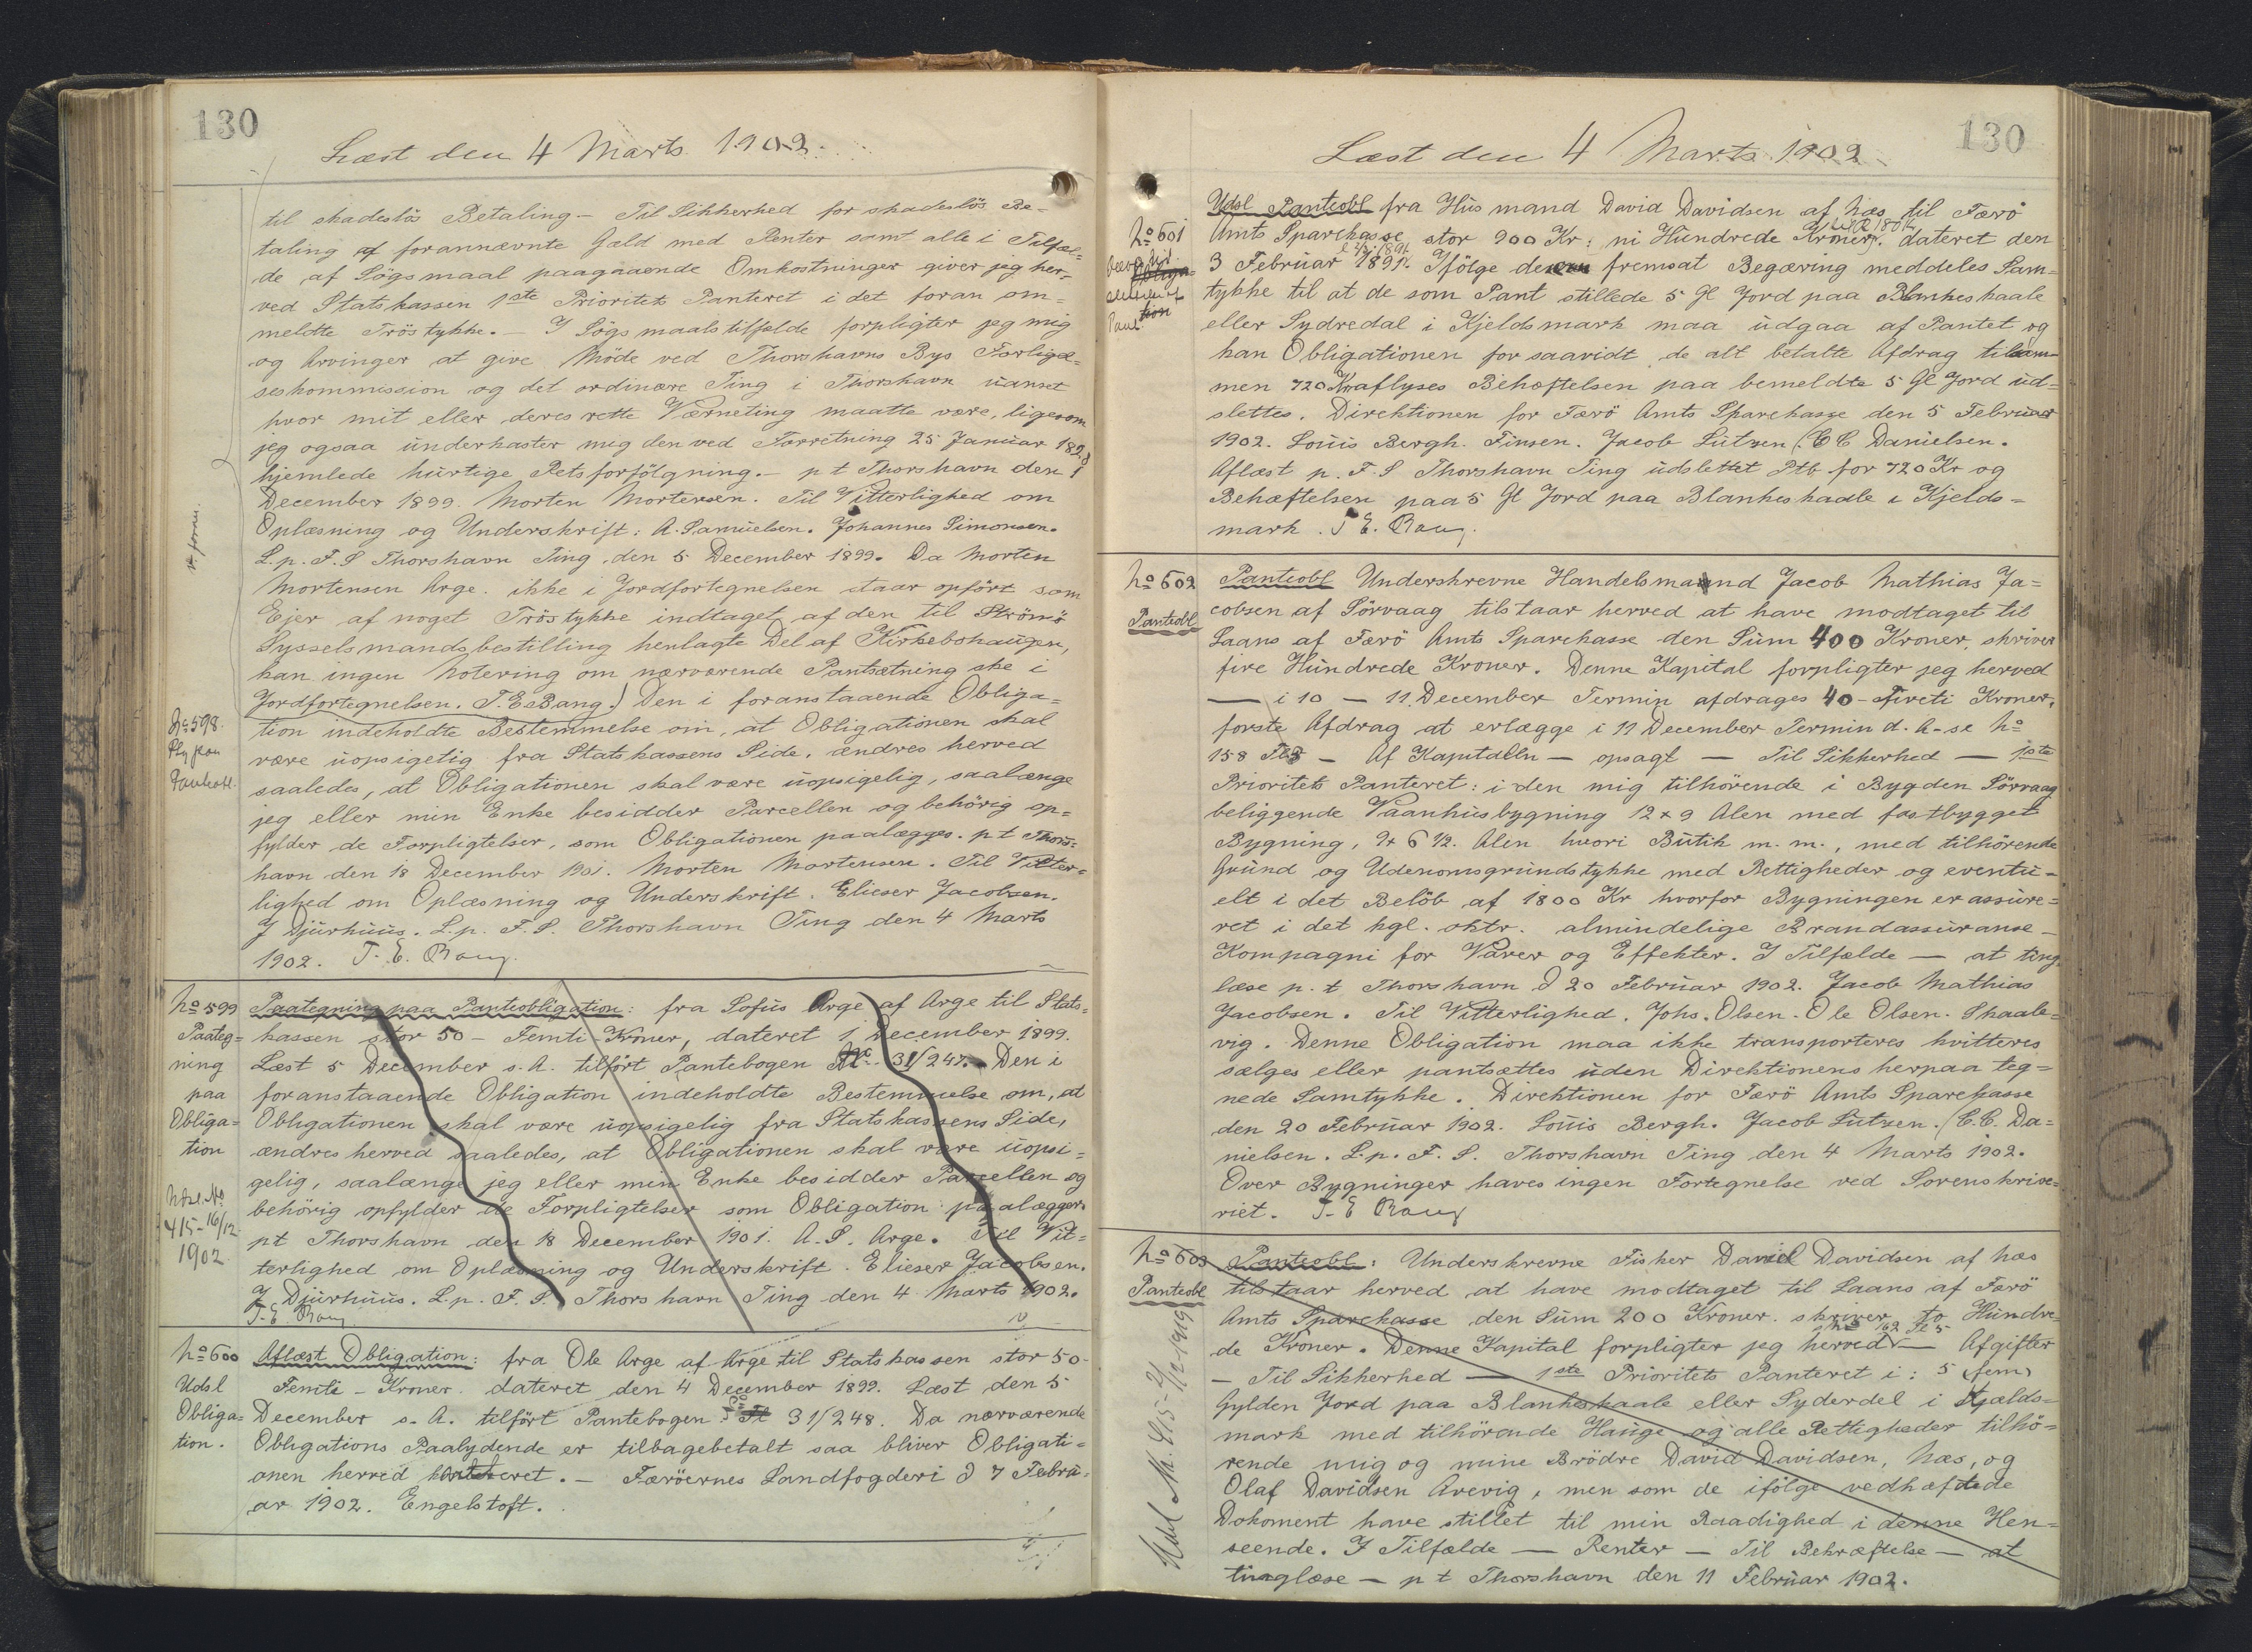 130
Læst den 4 Marts 1902.
til skadeslös Betaling - Til Sikkerhed for skadeslös Be=
taling af forannævnte Gæld med Renter samt alle i Tilfæl=
de af Sögsmaal paagaaende Omkostninger giver jeg her=
ved Statskassen 1ste Prioritets Panteret i det foran om=
meldte Tröstykke. - I Sögsmaalstilfælde forpligter jeg mig
og Arvinger at give Möde ved Thorshavns Bys Forligel=
seskommission og det ordinære Ting i Thorshavn uanset
hvor mit eller deres rette Værneting maatte være, ligesom
jeg ogsaa underkaster mig den ved Forretning 25 Januar 1828
hjemlede hurtige Retsforfölgning. - p t Thorshavn den 1
December 1899. Morten Mortensen. Til Vitterlighed om
Oplæsning og Underskrift: A. Samuelsen. Johannes Simonsen.
L. p. F. S Thorshavn Ting den 5 December 1899. Da Morten
Mortensen Arge. ikke i Jordfortegnelsen staar opfört som
Ejer af noget Tröstykke indtaget af den til Strömö
Sysselsmandsbestilling henlagte Del af Kirkeböhaugen,
kan ingen Notering om nærværende Pantsætning ske i
Jordfortegnelsen. T. E Bang.) Den i foranstaaende Obliga=
No 598.
tion indeholdte Bestemmelse om, at Obligationen skal
være uopsigelig fra Statskassens Side, ændres herved
saaledes, at Obligationen skal være uopsigelig, saalænge
jeg eller min Enke besidder Parcellen og behörig op=
fylder de Forpligtelser, som Obligationen paalægges. p t Thors=
havn den 18 December 1901. Morten Mortensen. Til Vitter=
lighed om Oplæsning og Underskrift. Elieser Jacobsen.
J Djurhuus. L. p. F. S. Thorshavn Ting den 4 Marts
1902. T. E. Bang.
No 599 Paategning paa Panteobligation: fra Sofus Arge af Arge til Stats=
Paateg= kassen stor 50 - Femti Kroner, dateret 1 December 1899.
ning Læst 5 December s. A. tilfört Pantebogen No. 31/247. Den i
paa foranstaaende Obligation indeholdte Bestemmelse om, at
Obliga= Obligationen skal være uopsigelig fra Statskassens Side,
tion ændres herved saaledes, at Obligationen skal være uopsi=
gelig, saalænge jeg eller min Enke besidder Parcellen og
Udsl. No behörig opfylder de Forpligtelser som Obligation paalægger.
415-16/12 pt Thorshavn den 18 December 1901. A. S. Arge. Til Vit=
1902. terlighed om Oplæsning og Underskrift. Elieser Jacobsen.
J Djurhuus. L. p. F. S. Thorshavn Ting den 4 Marts 1902.
T. E Bang
No 600 Aflæst Obligation: fra Ole Arge af Arge til Statskassen stor 50-
Udsl Femti - Kroner. dateret den 4 December 1899. Læst den 5
Obliga= December s. A. tilfört Pantebogen No 31/248. Da nærværende
tion. Obligations Paalydende er tilbagebetalt saa bliver Obligati=
onen herved kvitteret. - Færöernes Landfogderi d 7 Febru=
ar 1902. Engelstoft.
130
Læst den 4 Marts 1902
Udsl Panteobl fra Husmand David Davidsen af Næs til Færö
No 601 Amts Sparekasse stor 900 Kr: ni Hundrede Kroner. dateret den
3 Februar 1891. Ifölge derom fremsat Begæring meddeles Sam=
tykke til at de som Pant stillede 5 Gl Jord paa Blankeskaale
eller Sydredal i Kjeldsmark maa udgaa af Pantet og
kan Obligationen forsaavidt de alt betalte Afdrag tilsam=
men 720 Kr aflyses Behæftelsen paa bemeldte 5 Gl Jord ud=
slettes. Direktionen for Færö Amts Sparekasse den 5 Februar
1902. Louis Bergh. Finsen. Jacob Lützen / C C Danielsen.
Aflæst p. F. S Thorshavn Ting udslettet Ptb for 720 Kr og
Behæftelsen paa 5 Gl Jord paa Blankeskaale i Kjelds=
mark. T E. Bang.
No 602 Panteobl Underskrevne Handelsmand Jacob Mathias Ja=
Panteobl cobsen af Sörvaag tilstaar herved at have modtaget til
Laans af Færö Amts Sparekasse den Sum 400 Kroner, skriver
fire Hundrede Kroner. Denne Kapital forpligter jeg herved
— i 10 — 11. December Termin afdrages 40 - Fireti Kroner,
förste Afdrag at erlægge i 11 December Termin d. A. - se No
158 - Af Kapitalen — opsagt — Til Sikkerhed — 1ste
Prioritets Panteret: i den mig tilhörende i Bygden Sörvaag
beliggende Vaanhusbygning 12 x 9 Alen med fastbygget
Bygning, 9 x 6 1/2. Alen hvori Butik m. m., med tilhörende
Grund og Udenomsgrundstykke med Rettigheder og eventu=
elt i det Belöb af 1800 Kr hvorfor Bygningen er assure=
ret i det kgl. oktr. almindelige Brandassuranse-
Kompagni for Varer og Effekter. I Tilfælde — at ting=
læse p. t Thorshavn d 20 Februar 1902. Jacob Mathias
Jacobsen. Til Vitterlighed. Johs. Olsen. Ole Olsen. Skaale=
vig. Denne Obligation maa ikke transporteres kvitteres
sælges eller pantsættes uden Direktionens herpaa teg=
nede Samtykke. Direktionen for Færö Amts Sparekasse
den 20 Februar 1902. Louis Bergh. Jacob Lützen. / C. C. Da=
nielsen. L. p. F. S. Thorshavn Ting den 4 Marts 1902.
Over Bygninger haves ingen Fortegnelse ved Sorenskrive=
riet. T. E Bang
No 603 Panteobl: Underskrevne Fisker David Davidsen af Næs
Panteobl tilstaar herved at have modtaget til Laans af Færö
Amts Sparekasse den Sum 200 Kroner. skriver to Hundre=
de Kroner. Denne Kapital forpligter jeg herved — Afgifter
— Til Sikkerhed — 1ste Prioritets Panteret i: 5 fem
Gylden Jord paa Blankeskaale eller Syderdel i Kjælds=
mark med tilhörende Hauge og alle Rettigheder tilhö=
rende mig og mine Brödre David Davidsen, Næs, og
Olaf Davidsen Arevig, men som de ifölge vedhæftede
Dokoment have stillet til min Raadighed i denne Hen=
seende. I Tilfælde — Renter — Til Bekræftelse — at
tinglæse - p t Thorshavn den 11 Februar 1902.